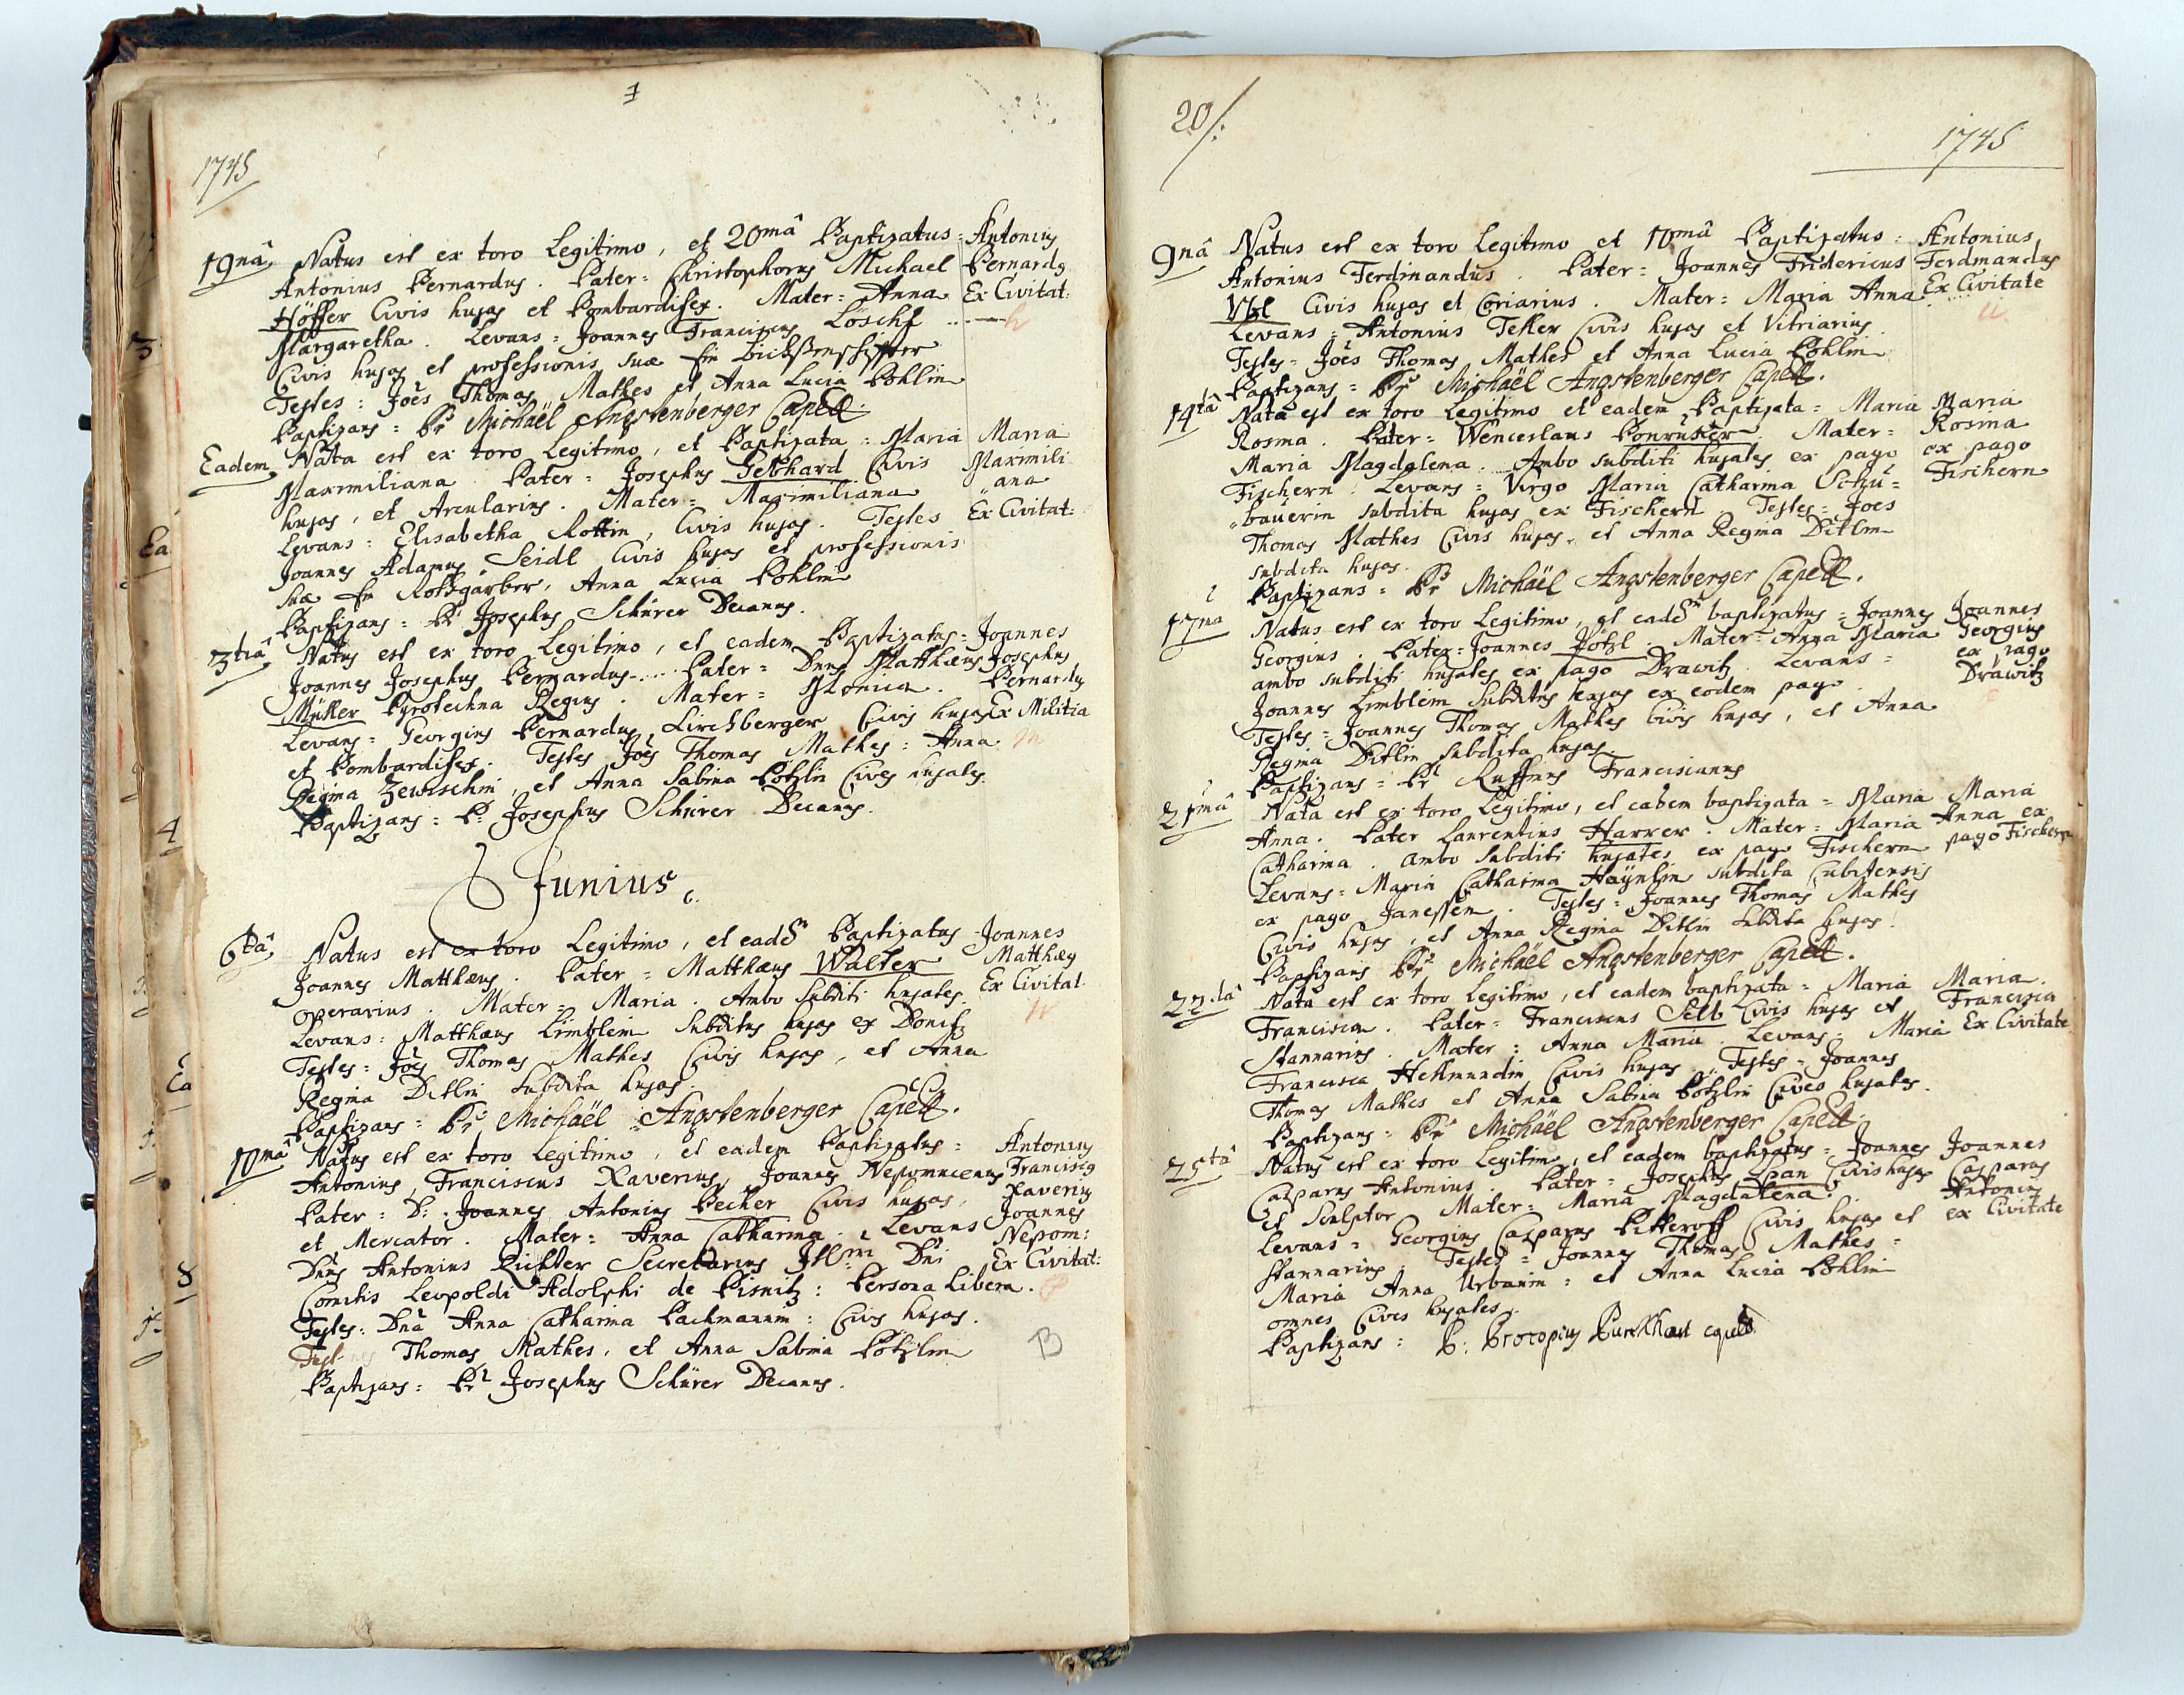 1745
19nâ Natus est ex toro Legitimo, et 20mâ Baptizatus = Antonius
Antonius Bernardus. Pater = Christophorus Michael Bernardg
Höffer Civis hujas et Bombardifex. Mater = Anna Ex Civitat:
Margaretha. Levans = Joannes Franciscus Löschl
Civis hujas et professionis suæ Ein
Testes = Joês Thomas Mathes et Anna Lucia Pöhlin
Baptizans = Pr Michaël Angstenberger Capell.
Eadem Nata est ex toro Legitimo, et Baptizata = Maria Maria
Maximiliana Pater = Josephus Gebhard Civis Maximili
hujas, et Arcularius. Mater = Maximiliana ana
Levans = Elisabetha Rottin, Civis hujas. Testes Ex Civitat:
Joannes Adamus Seidl Civis hujas et professionis
suæ Ein Rothgärber, Anna Lucia Pöhlin
Baptizans = Pr Josephus Schürer Decanus.
3tiâ Natus est ex toro Legitimo, et eadem Baptizatus = Joannes
Joannes Josephus Bernardus..... Pater = Dnus Matthæus Josephus
Müller Pyrotechna Regius. Mater = Monica. Bernardus
Levans = Georgius Bernardus Kirchberger Civis hujas Ex Militia
et Bombardifex. Testes Joês Thomas Mathes = Anna
Regina Zewischin, et Anna Sabina Pötzlin Cives hujates.
Baptizans = P: Josephus Schürer Decanus.
Junius
6tâ Natus est ex toro Legitimo, et eadem Baptizatus Joannes
Joannes Matthæus. Pater = Matthæus Walter Matthæg
operarius. Mater = Maria. Ambo subditi hujates. Ex Civitat
Levans = Matthæus Limblein Subditus hujas ex Donitz
Testes = Joês Thomas Mathes Civis hujas, et Anna
Regina Ditlin Subdita hujas.
Baptizans = Pr Michaël Angstenberger Capell.
10mâ Natus est ex toro Legitimo, et eadem Baptizatus = Antonius
Antonius, Franciscus Xaverius, Joannes Nepomucenus Franciscg
Pater = D: Joannes Antonius Becher Civis hujas, Xaverig
et Mercator. Mater = Anna Catharina. Levans Joannes
Dnus Antonius Richter Secretarius Illmi Dni Nepom:
Comitis Leopoldi Adolphi de Pisnitz: Persona Libera. Ex Civitat:
Testes: Dna Anna Catharina Pachmannin: Civis hujas.
Test Thomas Mathes, et Anna Sabina Pötzlin
Baptizans = Pr Josephus Schürer Decanus.
B
20/:
1745
9nâ Natus est ex toro Legitimo et 10mâ Baptizatus: Antonius
Antonius Ferdinandus. Pater = Joannes Fridericus Ferdinandus
Utzl Civis hujas et Coriarius. Mater = Maria Anna Ex Civitate
Levans = Antonius Teller Civis hujas et Vitriarius.
Testes = Joês Thomas Mathes et Anna Lucia Pöhlin
Baptizans = Pr Michaël Angstenberger Capell.
14tâ Nata est ex toro Legitimo et eadem Baptizata = Maria Maria
Rosina. Pater = Wenceslaus Ponrucker Mater = Rosina
Maria Magdalena. Ambo subditi hujates ex pago ex pago
Fischern. Levans = Virgo Maria Catharina Schu= Fischern
bauerin subdita hujas ex Fischern. Testes = Joes
Thomas Mathes Civis hujas, et Anna Regina Ditlin
subdita hujas.
Baptizans = Pr Michaël Angstenberger Capell.
17mâ Natus est ex toro Legitimo, et eadem baptizatus = Joannes Joannes
Georgius. Pater = Joannes Pötzl. Mater = Anna Maria Georgius
ambo subditi hujates ex pago Drawitz. Levans = ex pago
Joannes Limblein Subditus hujas ex eodem pago. Drawitz
Testes = Joannes Thomas Mathes Civis hujas, et Anna
Regina Ditlin subdita hujas.
Baptizans = Pr Ruffinus Franciscanus
21mâ Nata est ex toro Legitimo, et eadem baptizata = Maria Maria
Anna. Pater Laurentius Harrer. Mater = Maria Anna ex
Catharina. Ambo subditi hujates ex pago Fischern pago Fischern
Levans = Maria Catharina Haÿnlin subdita Cubitensis
ex pago Janessen. Testes = Joannes Thomas Mathes
Civis hujas, et Anna Regina Ditlin subdita hujas.
Baptizans Pr Michaël Angstenberger Capell.
22dâ Nata est ex toro Legitimo, et eadem baptizata = Maria Maria
Francisca. Pater = Franciscus Selb Civis hujas et Francisca
Stannarius. Mater = Anna Maria. Levans: Maria Ex Civitate
Francisca Hellmundin Civis hujas. Testes = Joannes
Thomas Mathes et Anna Sabina Pötzlin Cives hujates.
Baptizans = Pr Michaël Angstenberger Capell.
25tâ Natus est ex toro Legitimo, et eadem baptizatus = Joannes Joannes
Casparus Antonius. Pater = Josephus Span Civis hujas Casparus
et Sculptor. Mater = Maria Magdalena. Antonius
Levans = Georgius Casparus Pitteroff Civis hujas et ex Civitate
Stannarius. Testes = Joannes Thomas Mathes =
Maria Anna Urbanin = et Anna Lucia Pöhlin
omnes Cives hujates.
Baptizans: P: Procopius Burckhart capell